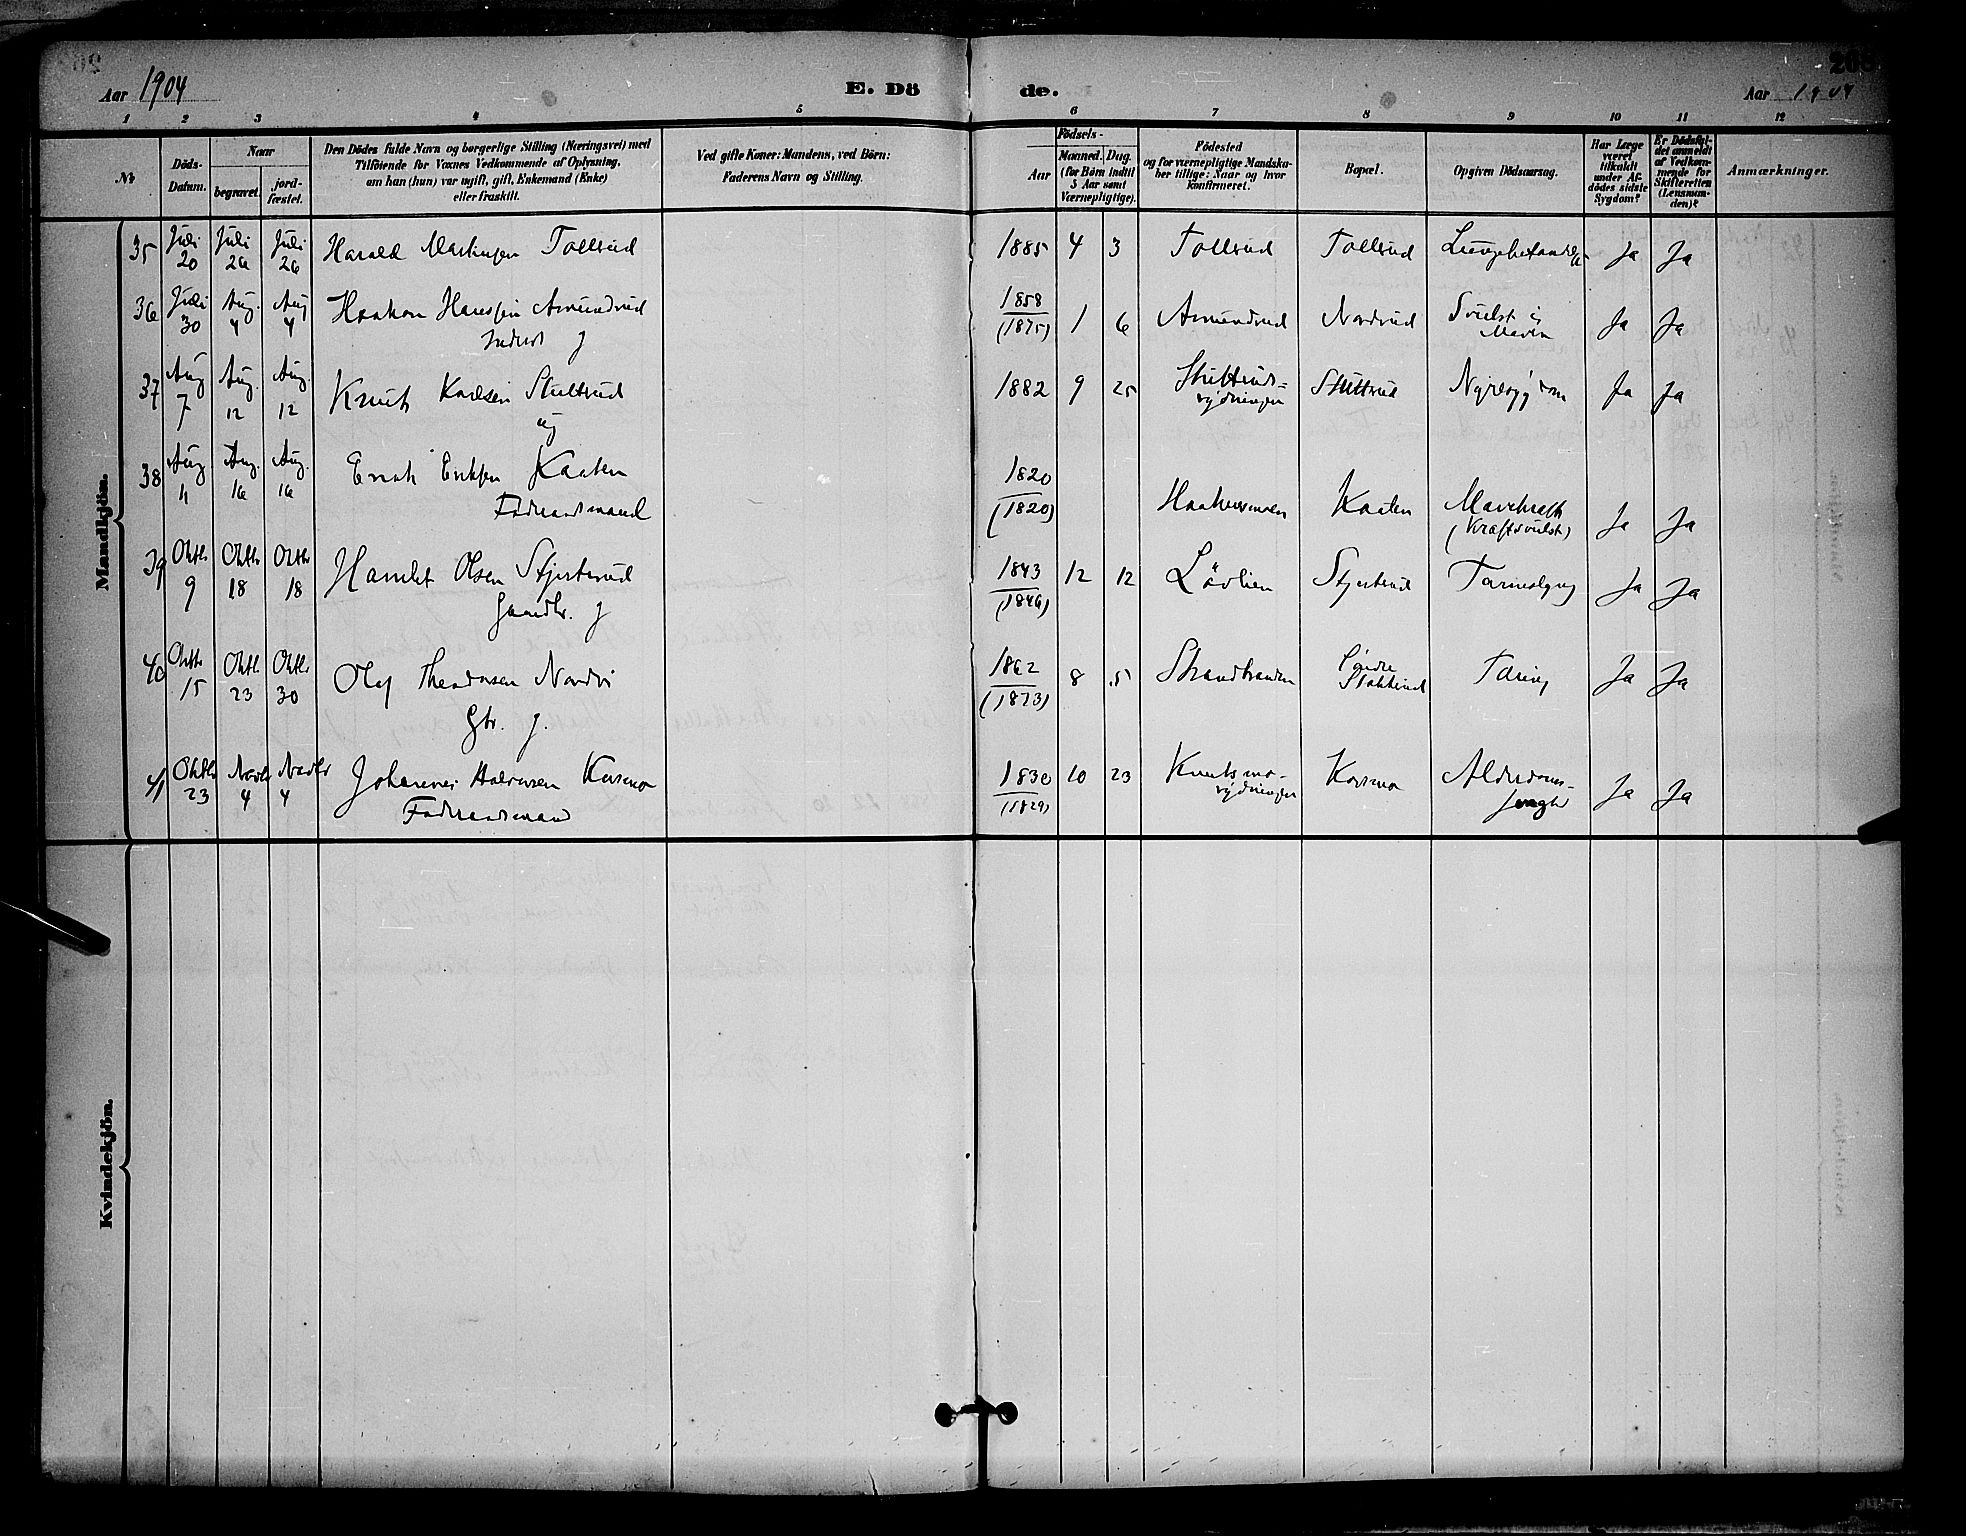 Aar 1904
E. Dö
de.
Aar 1904
1 2 3 4 5 6 7 8 9 10 11 12
№
Döds-
Datum.
Naar
begravet.
jord-
fæstet.
Den Dödes fulde Navn og borgerlige Stilling (Næringsvei) med
Tilföiende for Voxnes Vedkommende af Oplysning,
om han (hun) var ugift, gift, Enkemand (Enke)
eller fraskilt.
Ved gifte Koner: Mandens, ved Börn:
Faderens Navn og Stilling.
Födsels-
Aar
Maaned. Dag.
(for Börn indtil
5 Aar samt
Værnepligtige).
Födested
og for værnepligtige Mandska-
ber tillige: Naar og hvor
konfirmeret.
Bopæl.
Opgiven Dödsaarsag.
Har Læge
været
tilkaldt
under Af-
dödes sidste
Sygdom?
Er Dödsfal-
det anmeldt
af Vedkom-
mende for
Skifteretten
(Lensman-
den)?
Anmærkninger.
Mandkjön.
35 Juli 20 Juli 26 Juli 26 Harald Martinsen Tollsrud 1885 4 3 Tollsrud Tollsrud Ja Ja
36 Juli 30 Aug. 4 Aug 4 Haakon Hanssen Amundrud
g
1858 (1875) 1 6 Amundrud Nordrud Svulst i
Maven Ja Ja
37 Aug 7 Aug. 12 Aug. 12 Knut Karlsen Stuttrud
ug
1882 9 25 Stuttrud-
rydningen Stuttrud Nyresygdom Ja Ja
38 Aug 11 Aug. 16 Aug. 16 Erik Eriksen Kaaten
Föderaadsmand
1820 (1820) Kaaten Mavekræft
(Kræftsvulst) Ja Ja
39 Oktb 9 Oktb 18 Oktb 18 Olsen Stjertsrud
g
1843 (1846) 12 12 Lövlien Stjertsrud Ja Ja
40 Oktb 15 Oktb 23 Oktb 30 Olaf Theodorsen Nordvi
Gbr. g.
1862 (1873) 8 5 Strandbraaten Söndre
Stokkerud Tæring Ja Ja
41 Oktb 23 Novb 4 Novb 4 Johannes Halvorsen Korsmo
Föderaadsmand
1830 (1829) 10 23 Knutsmo-
rydningen Korsmo Alderdoms-
Ja Ja
Kvindekjön.